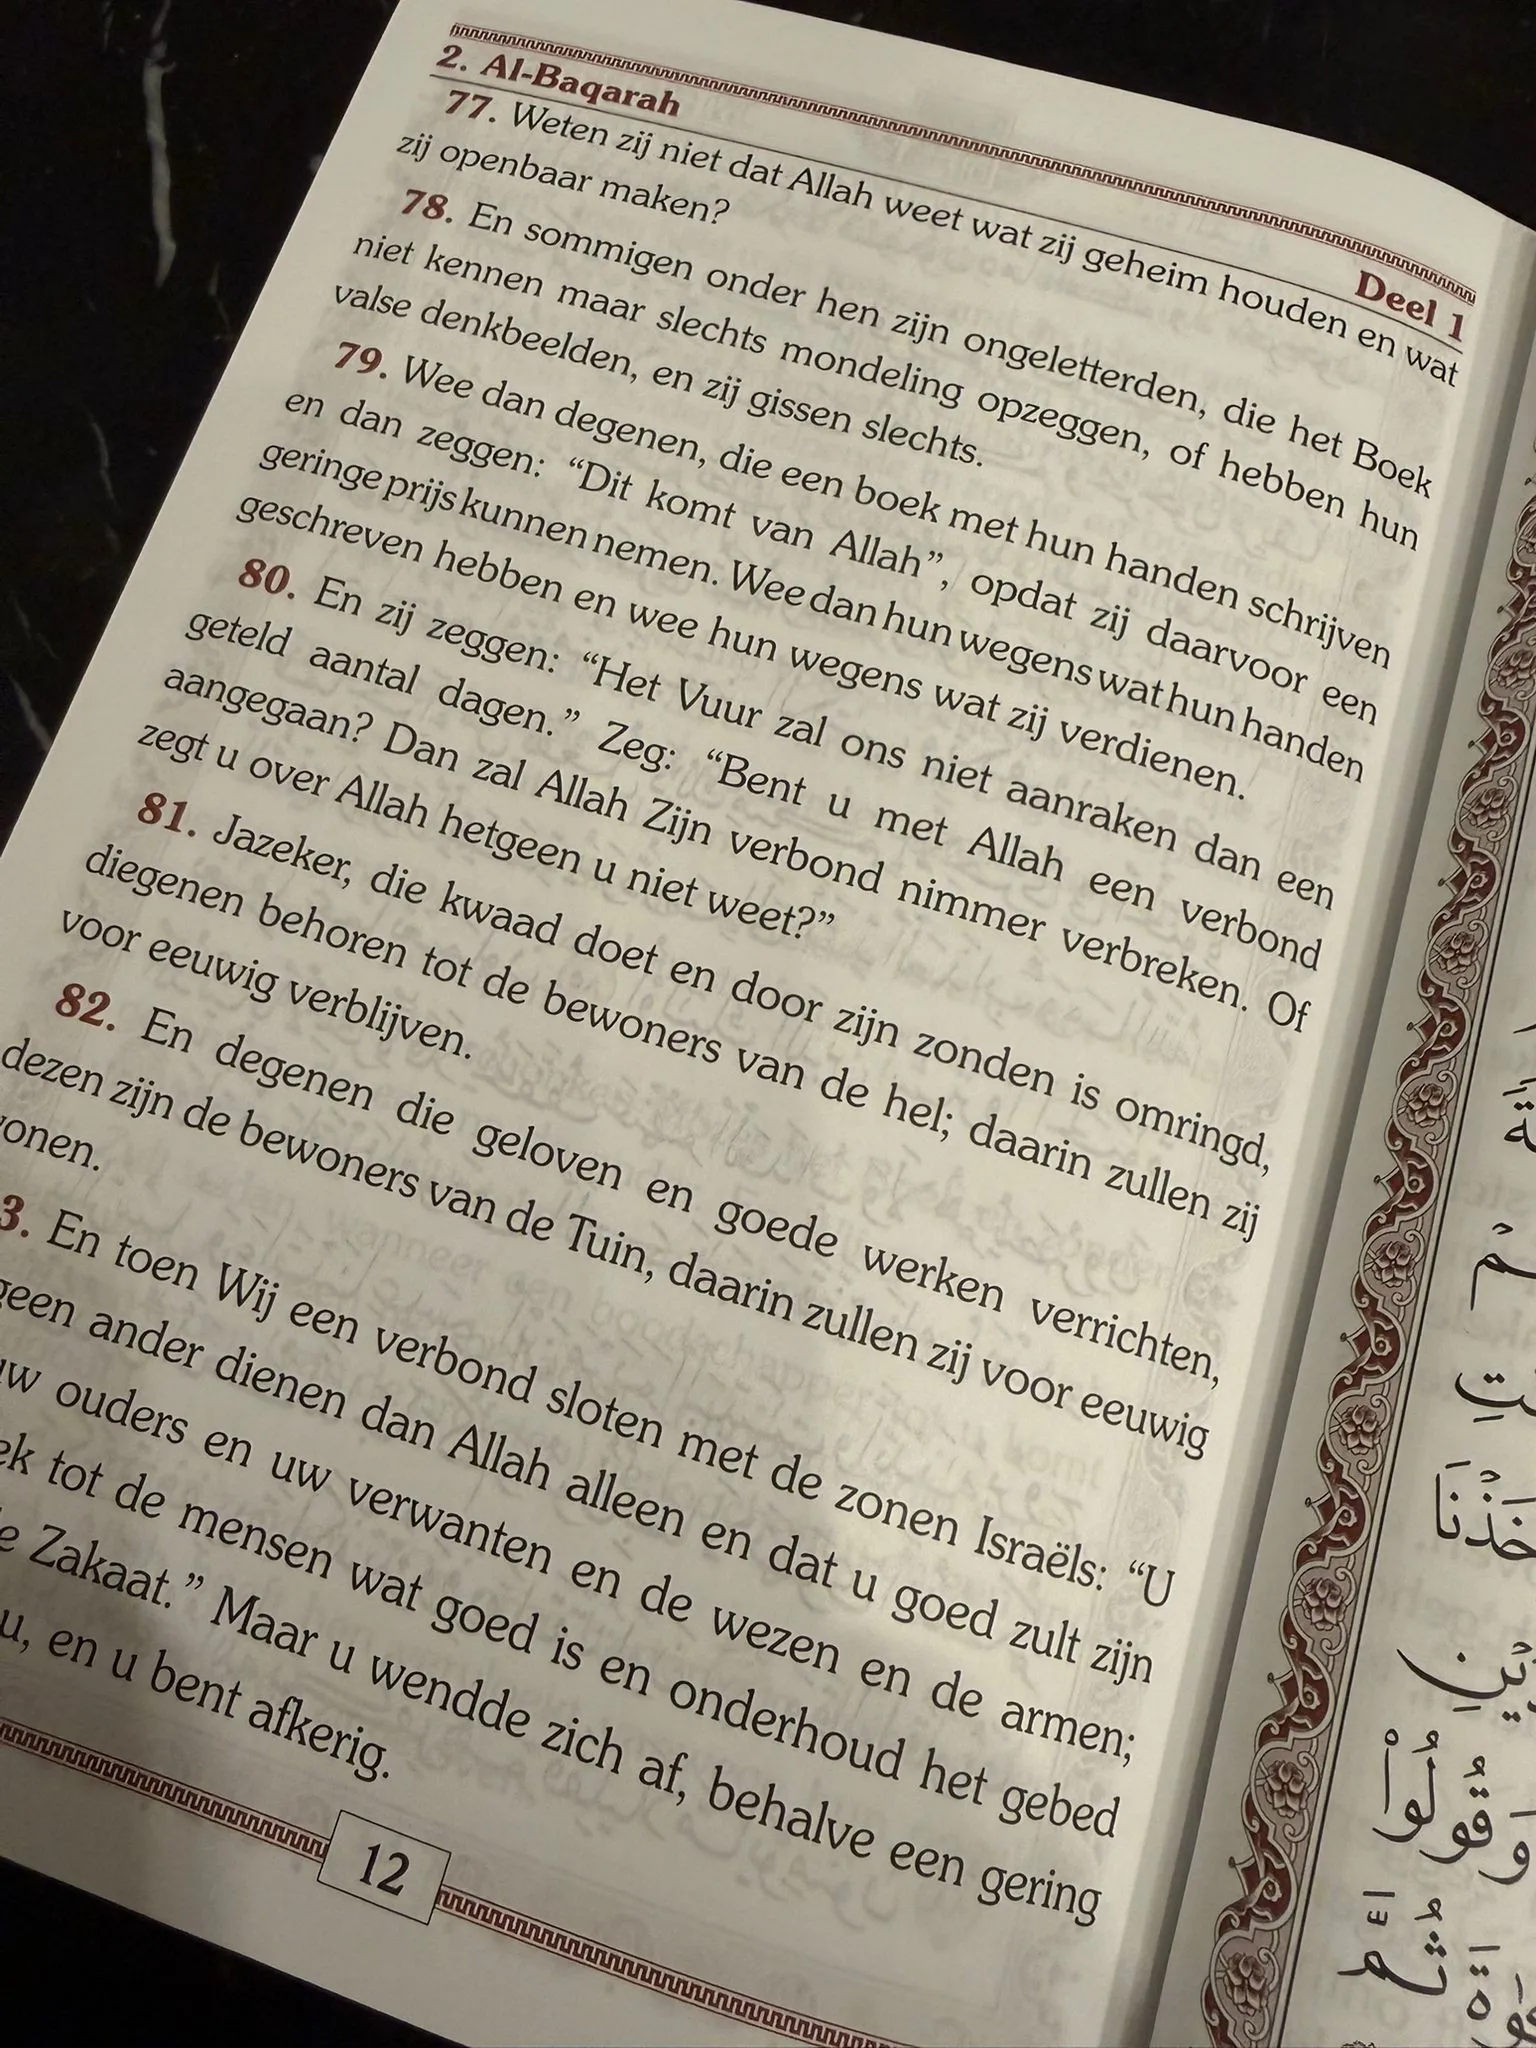 2. Al-Baqarah
Deel 1
77. Weten zij niet dat Allah weet wat zij geheim houden en wat
zij openbaar maken?
78. En sommigen onder hen zijn ongeletterden, die het Boek
niet kennen maar slechts mondeling opzeggen, of hebben hun
valse denkbeelden, en zij gissen slechts.
79. Wee dan degenen, die een boek met hun handen schrijven
en dan zeggen: “Dit komt van Allah”, opdat zij daarvoor een
geringe prijs kunnen nemen. Wee dan hun wegens wat hun handen
geschreven hebben en wee hun wegens wat zij verdienen.
80. En zij zeggen: “Het Vuur zal ons niet aanraken dan een
geteld aantal dagen.” Zeg: “Bent u met Allah een verbond
aangegaan? Dan zal Allah Zijn verbond nimmer verbreken. Of
zegt u over Allah hetgeen u niet weet?”
81. Jazeker, die kwaad doet en door zijn zonden is omringd,
diegenen behoren tot de bewoners van de hel; daarin zullen zij
voor eeuwig verblijven.
82. En degenen die geloven en goede werken verrichten,
dezen zijn de bewoners van de Tuin, daarin zullen zij voor eeuwig
onen.
3. En toen Wij een verbond sloten met de zonen Israëls: “U
geen ander dienen dan Allah alleen en dat u goed zult zijn
uw ouders en uw verwanten en de wezen en de armen;
ek tot de mensen wat goed is en onderhoud het gebed
e Zakaat.” Maar u wendde zich af, behalve een gering
u, en u bent afkerig.
12
وَقُولُوا۟
ثُمَّ